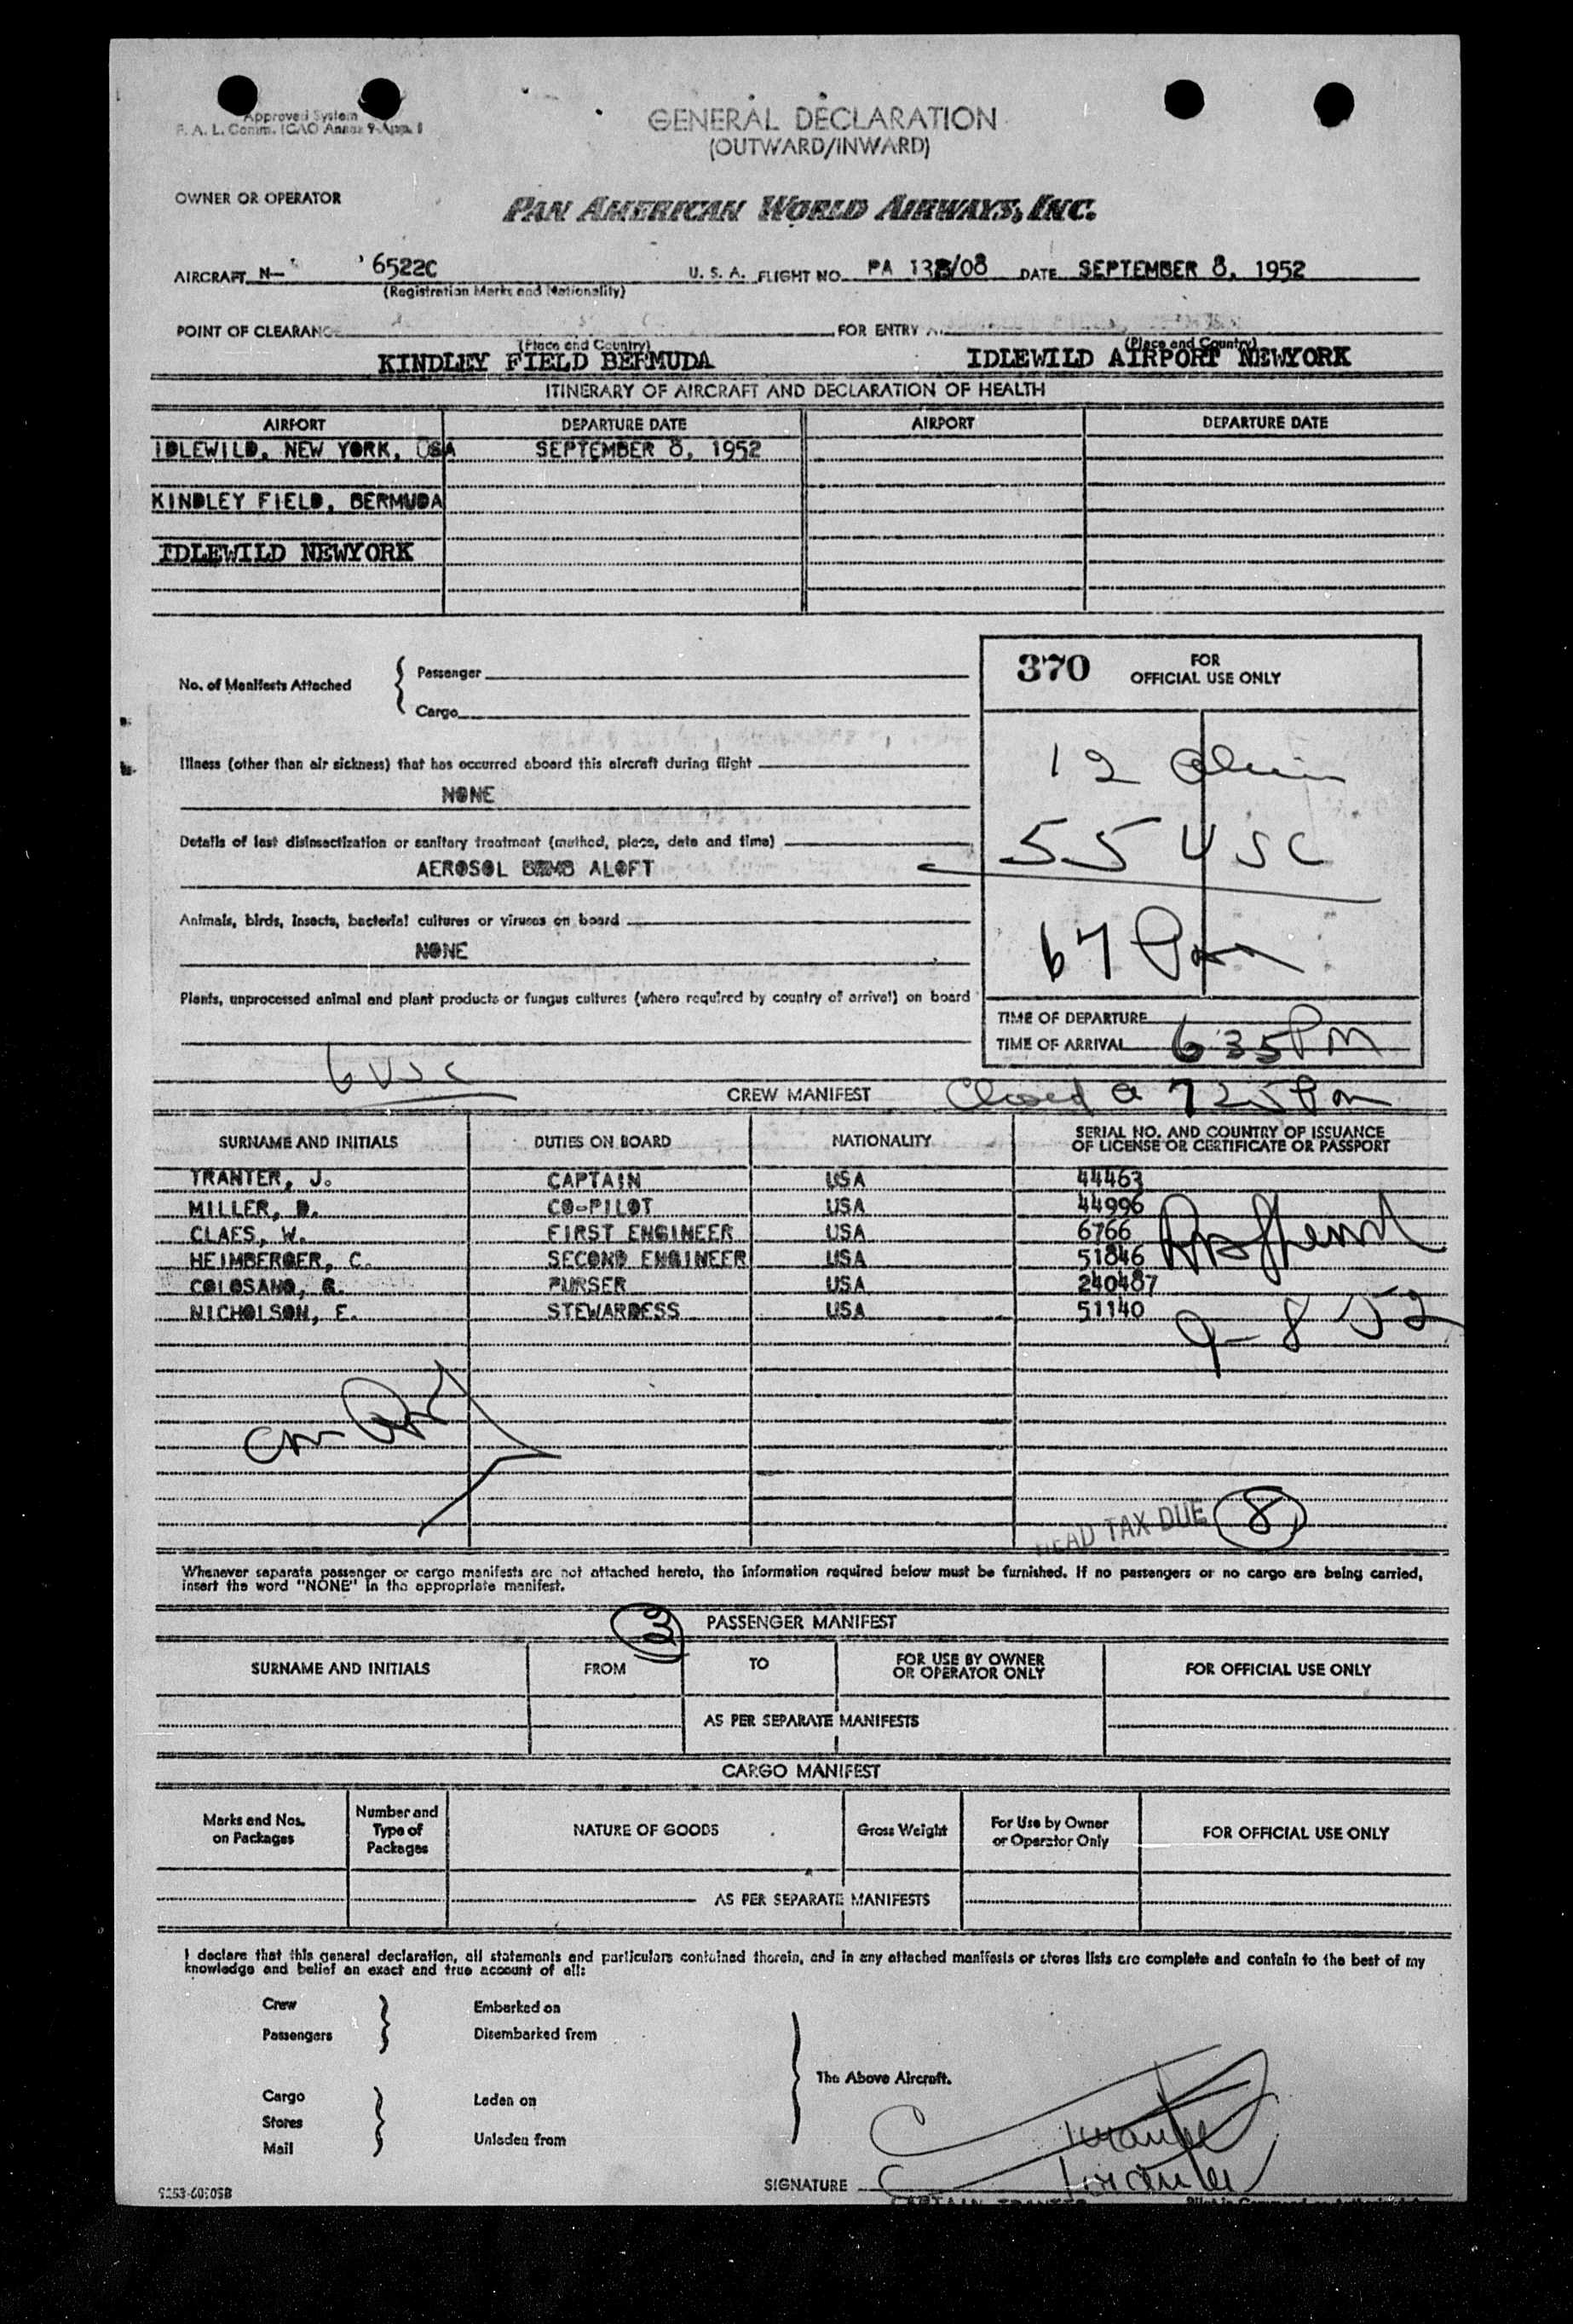 Approved System
F. A. L. Comm. ICAO Annex 9-App. 1
GENERAL DECLARATION
(OUTWARD/INWARD)
OWNER OR OPERATOR
PAN AMERICAN WORLD AIRWAYS, INC.
AIRCRAFT N— 6522C U. S. A. FLIGHT NO. PA 138/08 DATE SEPTEMBER 8, 1952
(Registration Marks and Nationality)
POINT OF CLEARANCE FOR ENTRY
(Place and Country) (Place and Country)
KINDLEY FIELD BERMUDA IDLEWILD AIRPORT NEWYORK
ITINERARY OF AIRCRAFT AND DECLARATION OF HEALTH
AIRPORT DEPARTURE DATE AIRPORT DEPARTURE DATE
IDLEWILD, NEW YORK, USA SEPTEMBER 8, 1952
KINDLEY FIELD, BERMUDA
IDLEWILD NEWYORK
No. of Manifests Attached
Passenger
Cargo
370 FOR
OFFICIAL USE ONLY
12 Alien
55 USC
67 Pax
TIME OF DEPARTURE
TIME OF ARRIVAL 6 35 PM
Illness (other than air sickness) that has occurred aboard this aircraft during flight
NONE
Details of last disinsectization or sanitary treatment (method, place, date and time)
AEROSOL BOMB ALOFT
Animals, birds, insects, bacterial cultures or viruses on board
NONE
Plants, unprocessed animal and plant products or fungus cultures (where required by country of arrival) on board
6 USC
CREW MANIFEST Closed @ 7 25 Pm
SURNAME AND INITIALS DUTIES ON BOARD NATIONALITY SERIAL NO. AND COUNTRY OF ISSUANCE
OF LICENSE OR CERTIFICATE OR PASSPORT
TRANTER, J. CAPTAIN USA 44463
MILLER, D. CO-PILOT USA 44996
CLAES, W. FIRST ENGINEER USA 6766
HEIMBERGER, C. SECOND ENGINEER USA 51846
COLOSANO, G. PURSER USA 240487
NICHOLSON, E. STEWARDESS USA 51140
9-8 52
HEAD TAX DUE 8
Whenever separate passenger or cargo manifests are not attached hereto, the information required below must be furnished. If no passengers or no cargo are being carried,
insert the word "NONE" in the appropriate manifest.
3 PASSENGER MANIFEST
SURNAME AND INITIALS FROM TO FOR USE BY OWNER
OR OPERATOR ONLY FOR OFFICIAL USE ONLY
AS PER SEPARATE MANIFESTS
CARGO MANIFEST
Marks and Nos.
on Packages
Number and
Type of
Packages
NATURE OF GOODS
Gross Weight
For Use by Owner
or Operator Only
FOR OFFICIAL USE ONLY
AS PER SEPARATE MANIFESTS
I declare that this general declaration, all statements and particulars contained therein, and in any attached manifests or stores lists are complete and contain to the best of my
knowledge and belief an exact and true account of all:
Crew Embarked on
Passengers Disembarked from
The Above Aircraft.
Cargo Laden on
Stores
Mail Unladen from
Tranter
SIGNATURE Tranter
CAPTAIN TRANTER